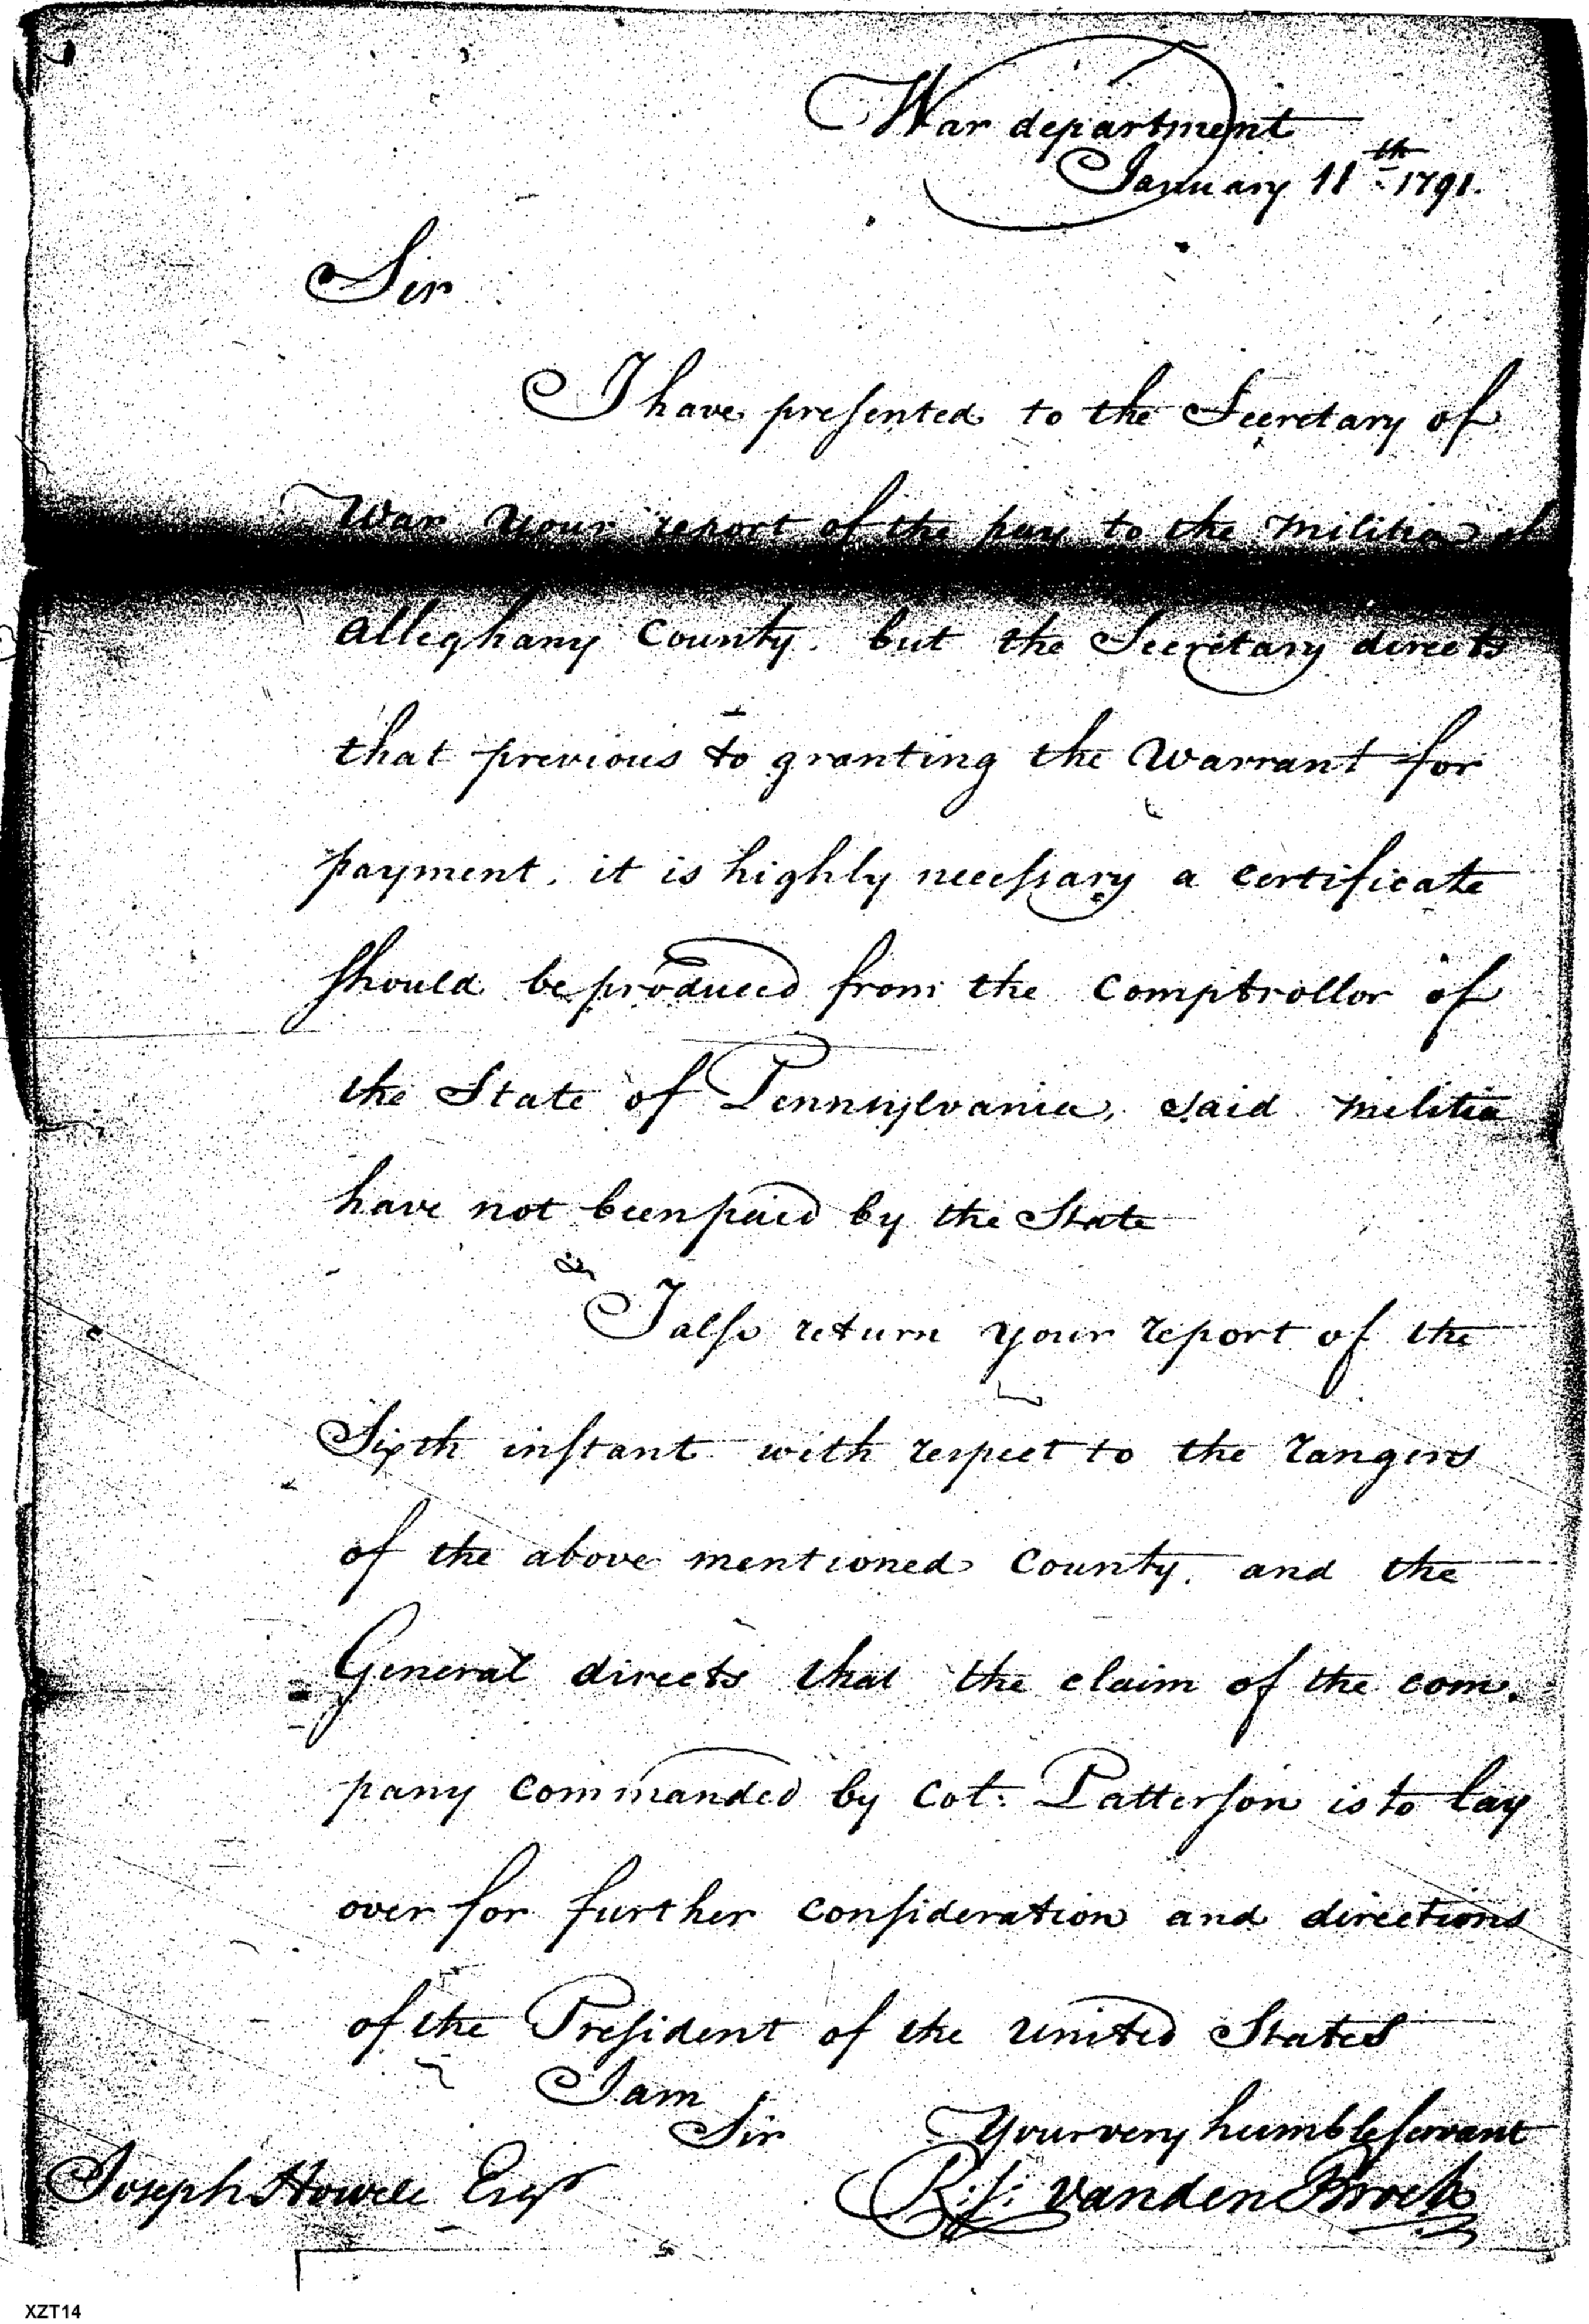 War department
January 11th 1791.
Sir
I have presented to the Secretary of
War your report of the pay to the militia of
Alleghany County. but the Secretary directs
that previous to granting the Warrant for
payment, it is highly necessary a certificate
should be produced from the Comptrollor of
the State of Pennsylvania, said militia
have not been paid by the State
I also return your report of the
Sixth instant with respect to the rangers
of the above mentioned County. and the
General directs that the claim of the com.
pany commanded by Col: Patterson is to lay
over for further consideration and directions
of the President of the United States
I am
Sir
Your very humble servant
Joseph Howell Esqr
R: J: Vanden Broek
XZT14